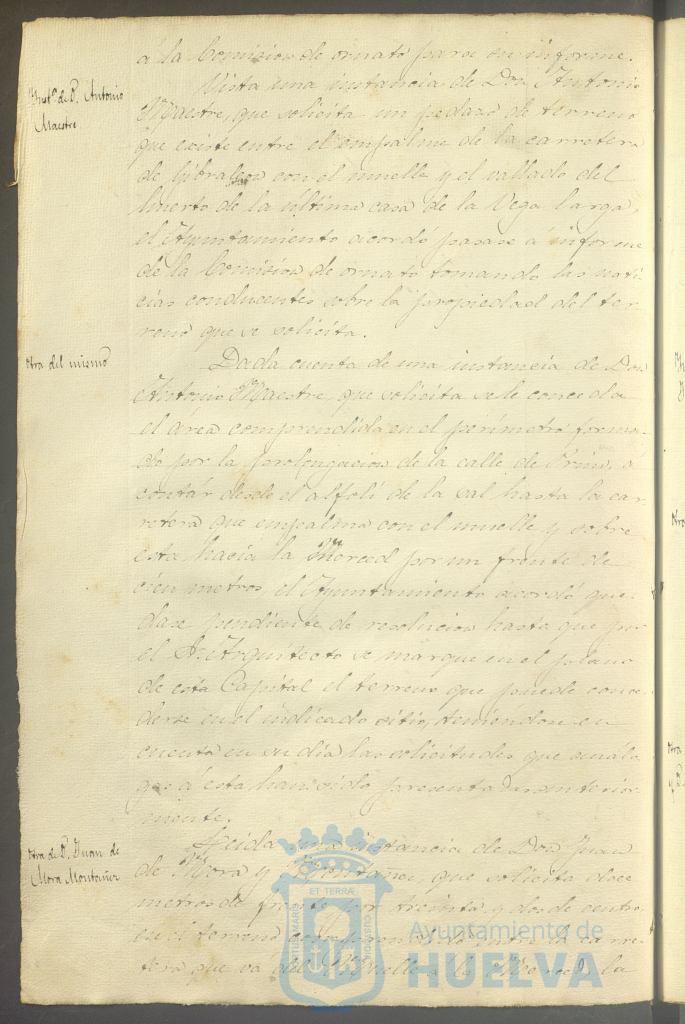 á la Comision de ornato para su informe.
Instª de D. Antonio
Maestre
Vista una instancia de Don Antonio
Maestre, que solicita un pedazo de terreno
que existe entre el empalme de la carretera
de Gibraleon con el muelle y el vallado del
huerto de la última casa de la Vega larga,
el Ayuntamiento acordó pasase á informe
de la Comision de ornato tomando las noti
cias conducentes sobre la propiedad del ter
reno que se solicita.
Otra del mismo
Dada cuenta de una instancia de Don
Antonio Maestre, que solicita se le conceda
el area comprendida en el perímetro forma-
do por la prolongacion de la calle de Prim, á
contar desde el alfolí de la sal hasta la car
retera que empalma con el muelle y sobre
esta hacia la Merced por un frente de
cien metros, el Ayuntamiento acordó que-
dase pendiente de resolucion hasta que por
el Sr. Arquitecto se marque en el plano
de esta Capital el terreno que puede conce-
derse en el indicado sitio, teniéndose en
cuenta en su dia las solicitudes que análo
gas á esta han sido presentadas anterior
mente.
Otra de D. Juan de
Mora Montañez
Leida una instancia de Don Juan
de Mora y que solicita doce
metros de frente por treinta y dos de centro
en el terreno entre la carre-
tera que vá del Muelle á la Merced, la
ET TERRÆ
PORTUS MARIS
CUSTODIA
Ayuntamiento de
HUELVA